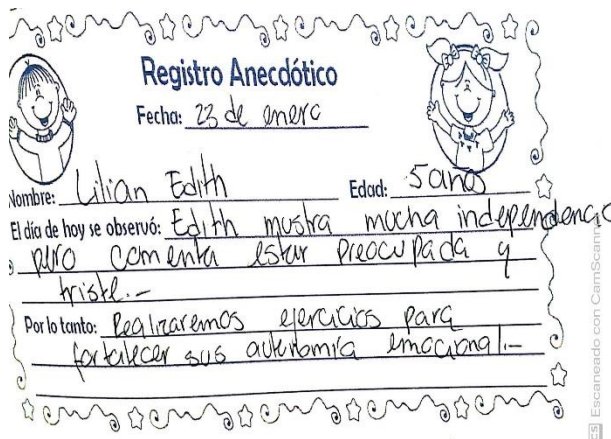 Registro Anecdótico
Fecha: 23 de enero
Nombre: Lilian Edith Edad: 5 años
El día de hoy se observó: Edith mustra mucha independencia
pero comenta estar preocupada y
triste.-
Por lo tanto: Realizaremos ejercicios para
fortalecer sus autonomía emocional.-
CS Escaneado con CamScanner